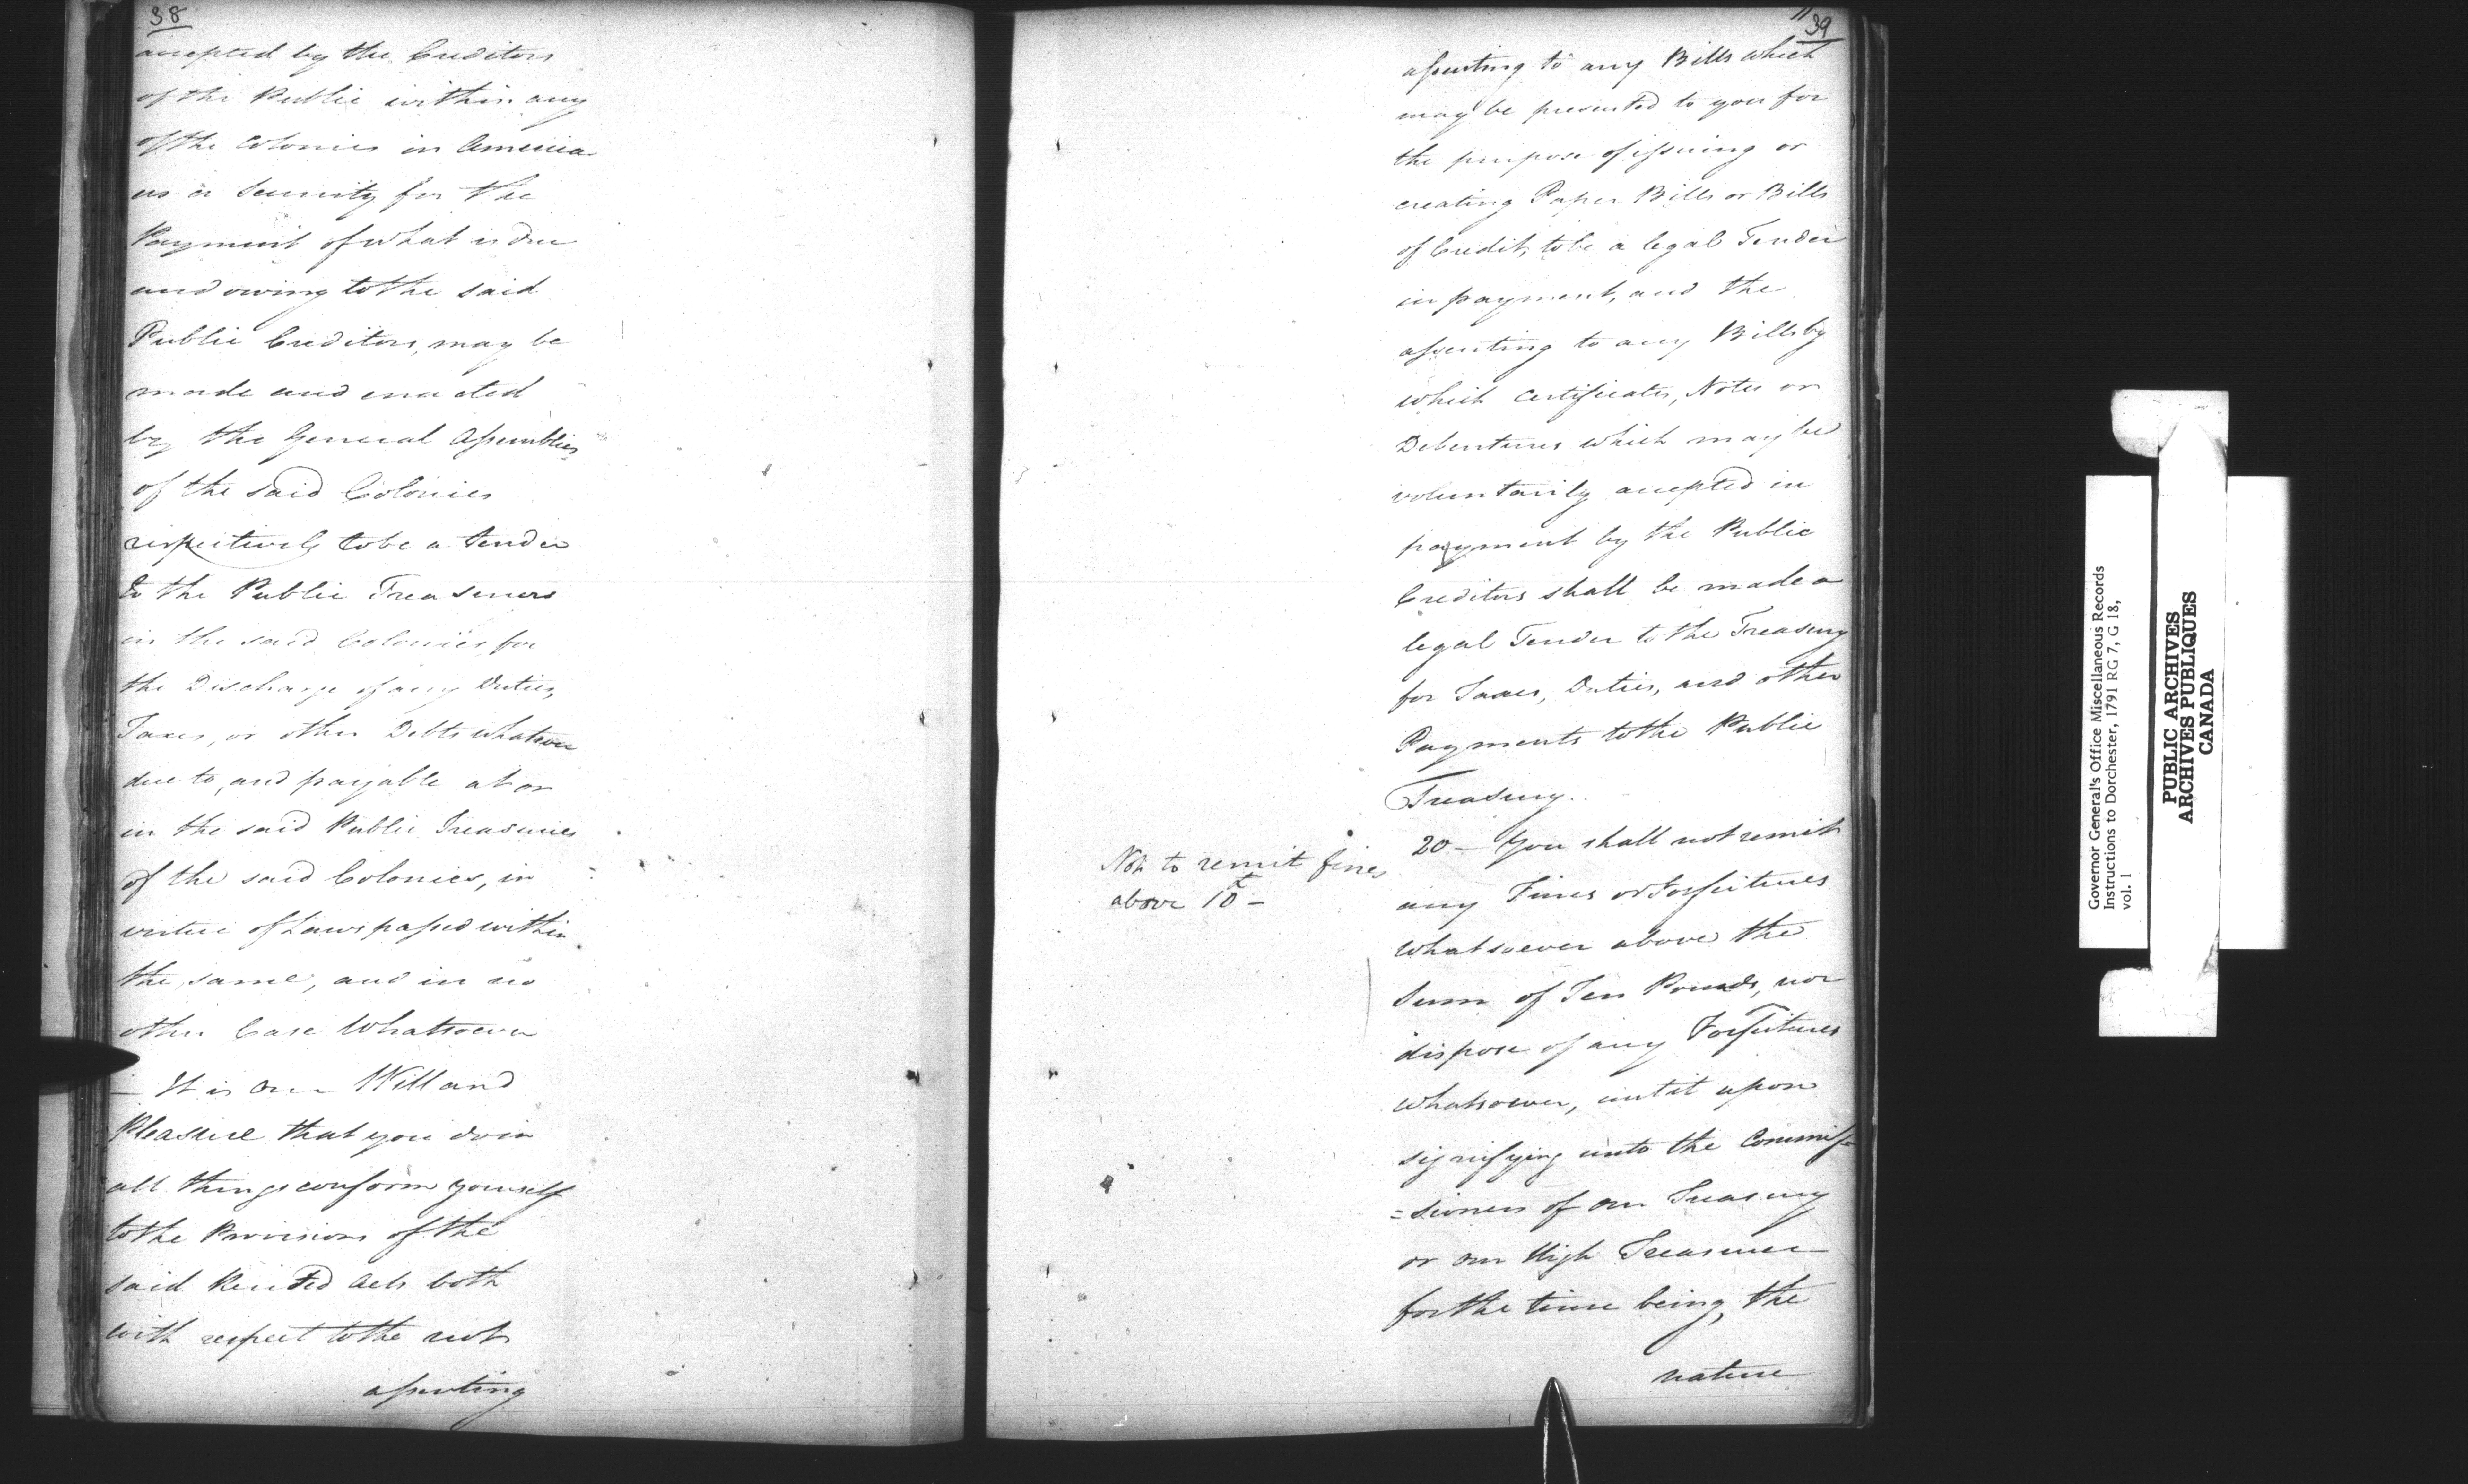 38
accepted by the Creditors
of the Public within any
of the Colonies in America
as a Security for the
Payment of what is due
and owing to the said
Public Creditors, may be
made and enacted
by the General Aſsemblies
of the said Colonies
respectively to be a tender
to the Public Treasurers
in the said Colonies for
the Discharge of any Duties,
Taxes, or other Debts whatsoever
due to, and payable at or
in the said Public Treasuries
of the said Colonies, in
virtue of Laws paſsed within
the same, and in no
other Case Whatsoever
— It is Our Will and
Pleasure that you do in
all things conform yourself
to the Provisions of the
said Recited Acts both
with respect to the not
aſsenting
39
aſsenting to any Bills which
may be presented to you for
the purpose of iſsuing or
creating Paper Bills or Bills
of Credit, to be a legal Tender
in payment, and the
aſsenting to any Bills by
which Certificates, Notes or
Debentures which may be
voluntarily accepted in
payment by the Public
Creditors shall be made a
legal Tender to the Treasury
for Taxes, Duties, and other
Payments to the Public
Treasury.
Not to remit fines
above 10£ —
20 — You shall not remit
any Fines or Forfeitures
whatsoever above the
Sum of Ten Pounds, nor
dispose of any Forfeitures
whatsoever, until upon
signifying unto the Commiſ=
=sioners of our Treasury
or our High Treasurer
for the time being, the
nature
Governor General's Office Miscellaneous Records
Instructions to Dorchester, 1791 RG 7, G 18,
vol. 1
PUBLIC ARCHIVES
ARCHIVES PUBLIQUES
CANADA